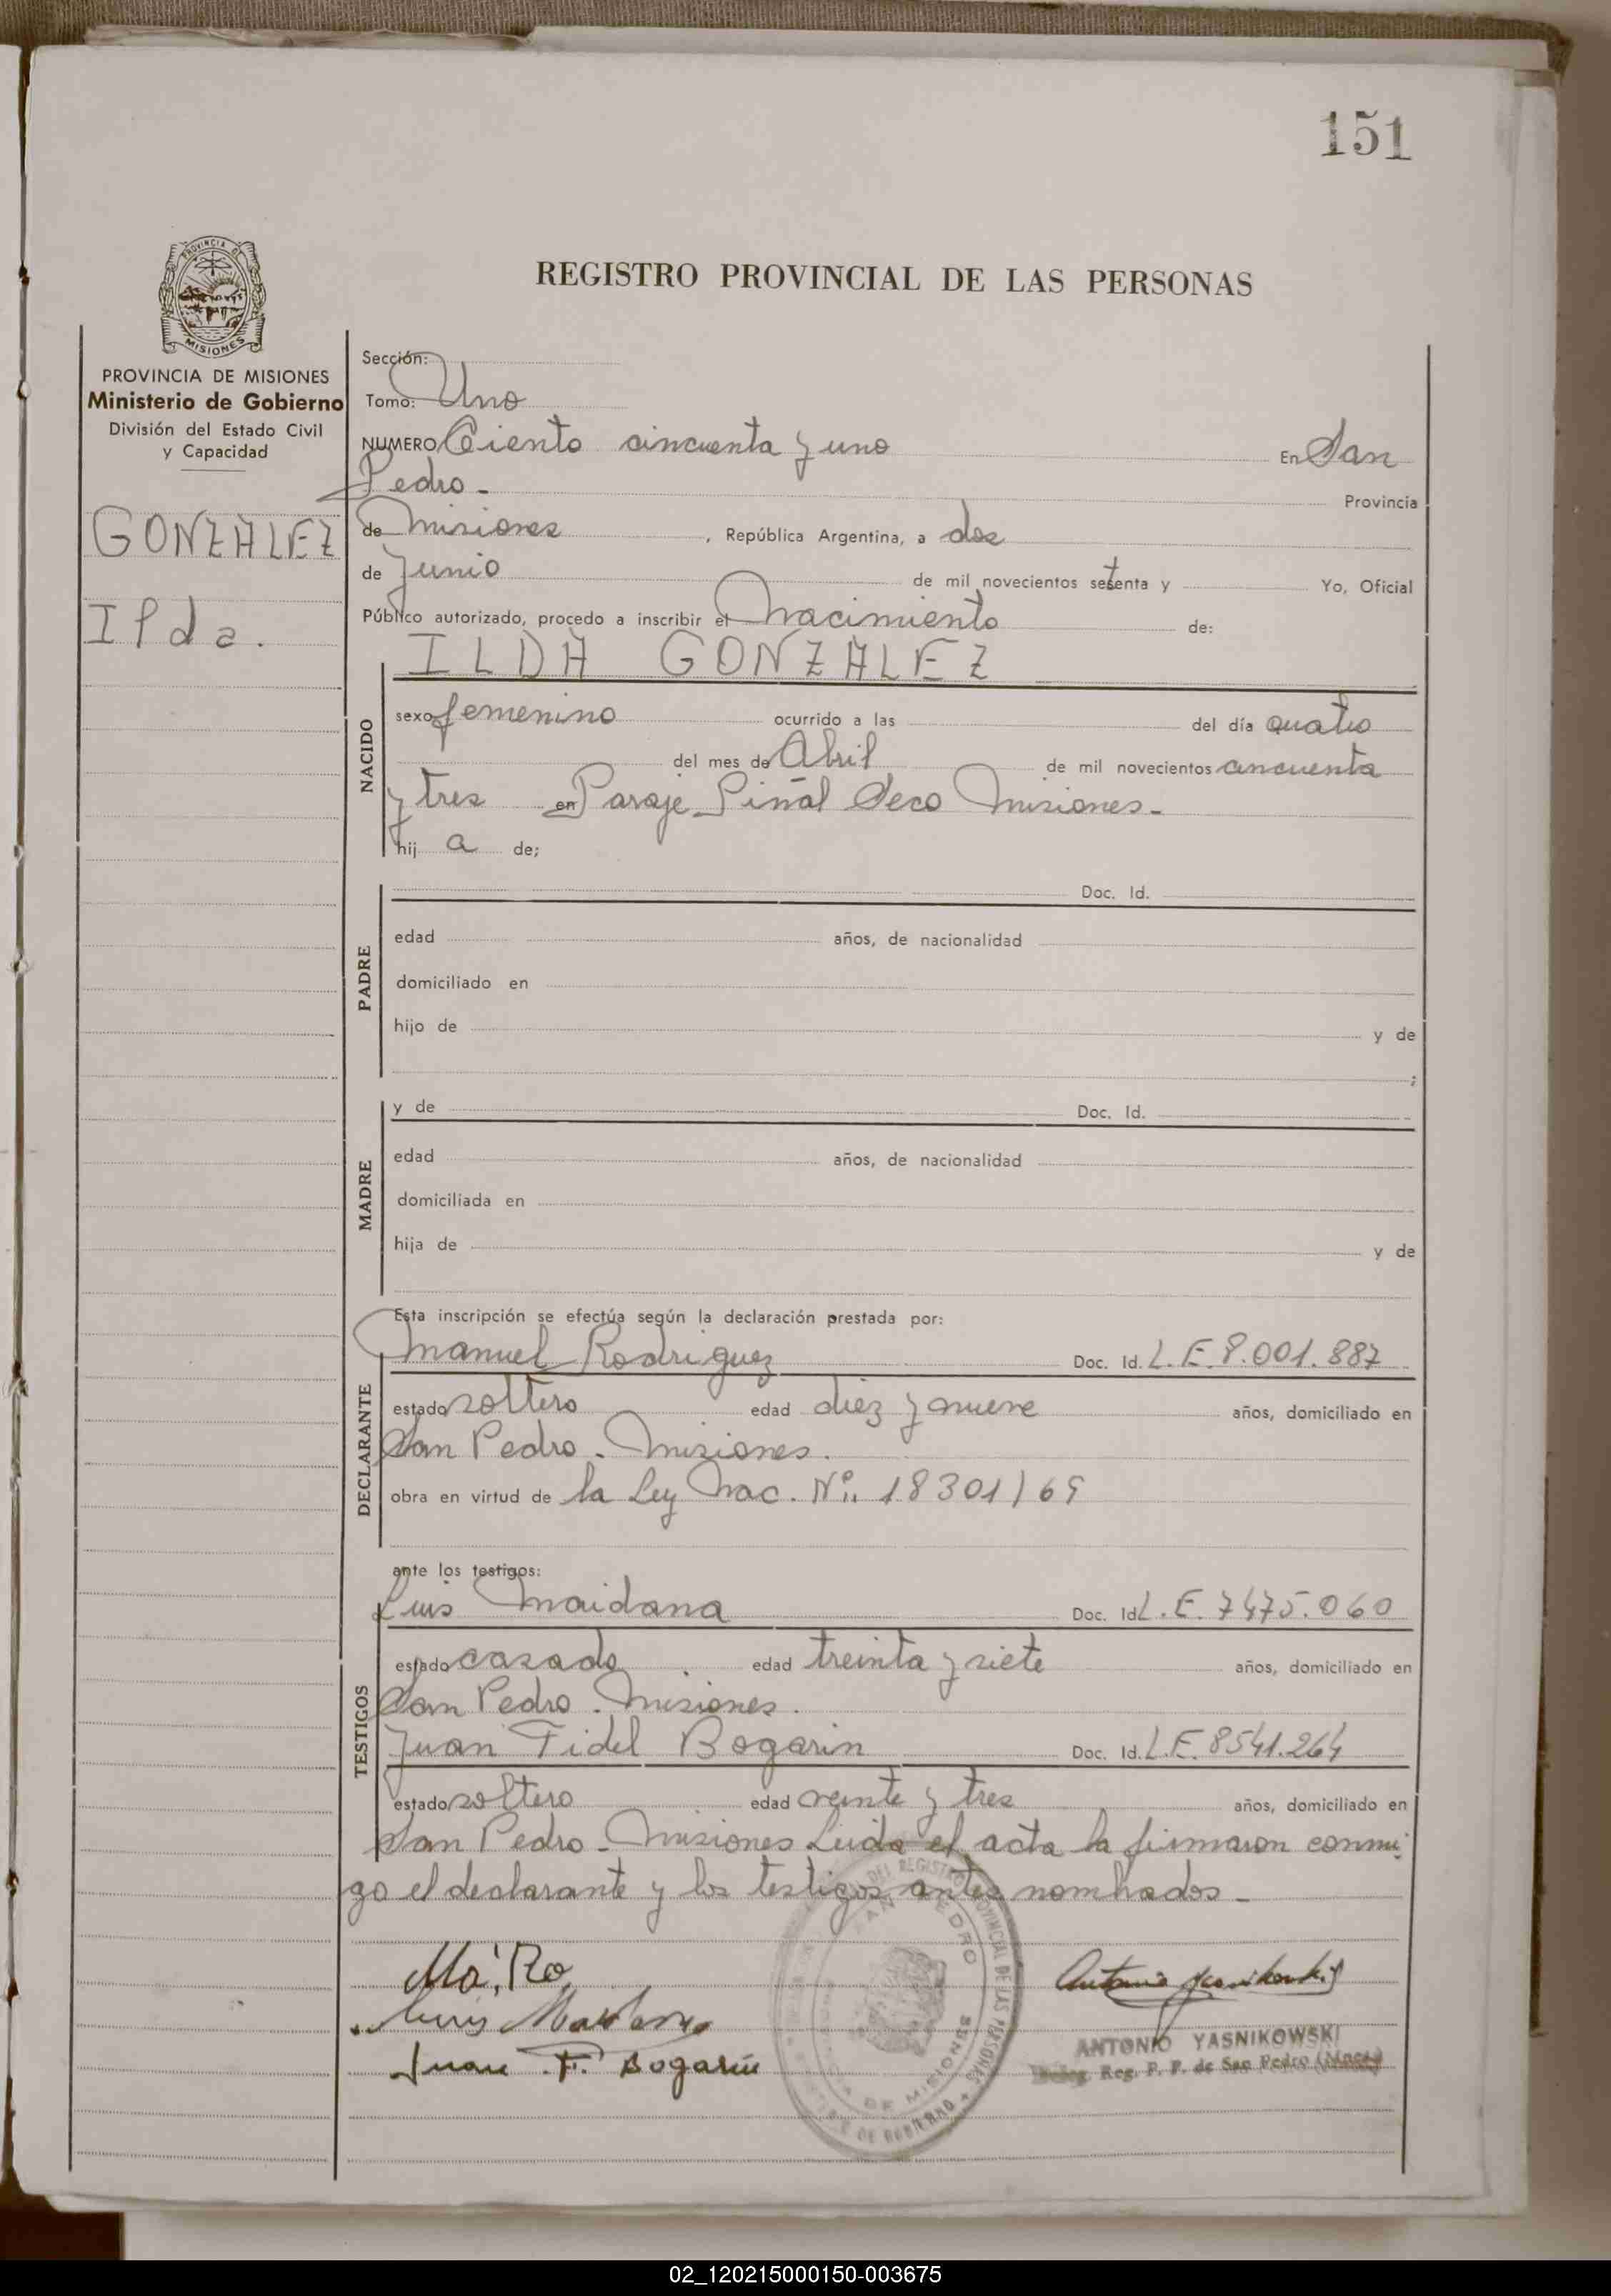 151
PROVINCIA DE
MISIONES
REGISTRO PROVINCIAL DE LAS PERSONAS
PROVINCIA DE MISIONES
Ministerio de Gobierno
División del Estado Civil
y Capacidad
GONZALEZ
Ilda.
Sección:
Tomo: Uno
NUMERO Ciento cincuenta y uno En San
Pedro - Provincia
de Misiones , República Argentina, a dos
de Junio de mil novecientos setenta y Yo, Oficial
Público autorizado, procedo a inscribir el Nacimiento de:
ILDA GONZALEZ
NACIDO
sexo femenino ocurrido a las del día cuatro
del mes de Abril de mil novecientos cincuenta
y tres en Paraje Piñal Seco Misiones -
hij a de;
PADRE
Doc. Id.
edad años, de nacionalidad
domiciliado en
hijo de y de
;
MADRE
y de Doc. Id.
edad años, de nacionalidad
domiciliada en
hija de y de
DECLARANTE
Esta inscripción se efectúa según la declaración prestada por:
Manuel Rodriguez Doc. Id. L.E. 8.001.887
estado soltero edad diez y nueve años, domiciliado en
San Pedro - Misiones.
obra en virtud de la Ley Nac. Nº 18301/69
TESTIGOS
ante los testigos:
Luis Maidana Doc. Id. L.E. 7475.060
estado casado edad treinta y siete años, domiciliado en
San Pedro. Misiones.
Juan Fidel Bogarin Doc. Id. L.E. 8541.264
estado soltero edad veinte y tres años, domiciliado en
San Pedro - Misiones Leida el acta la firmaron conmi
go el declarante y los testigos antes nombrados -
DEL REGISTRO PROVINCIAL DE LAS PERSONAS
SAN PEDRO
DE MISIONES
DE GOBIERNO
Ma. Ro.
Luis
Juan F. Bogarin
Antonio Yasnikowski
ANTONIO YASNIKOWSKI
Deleg. Reg. P. P. de San Pedro (Mnes)
02_120215000150-003675